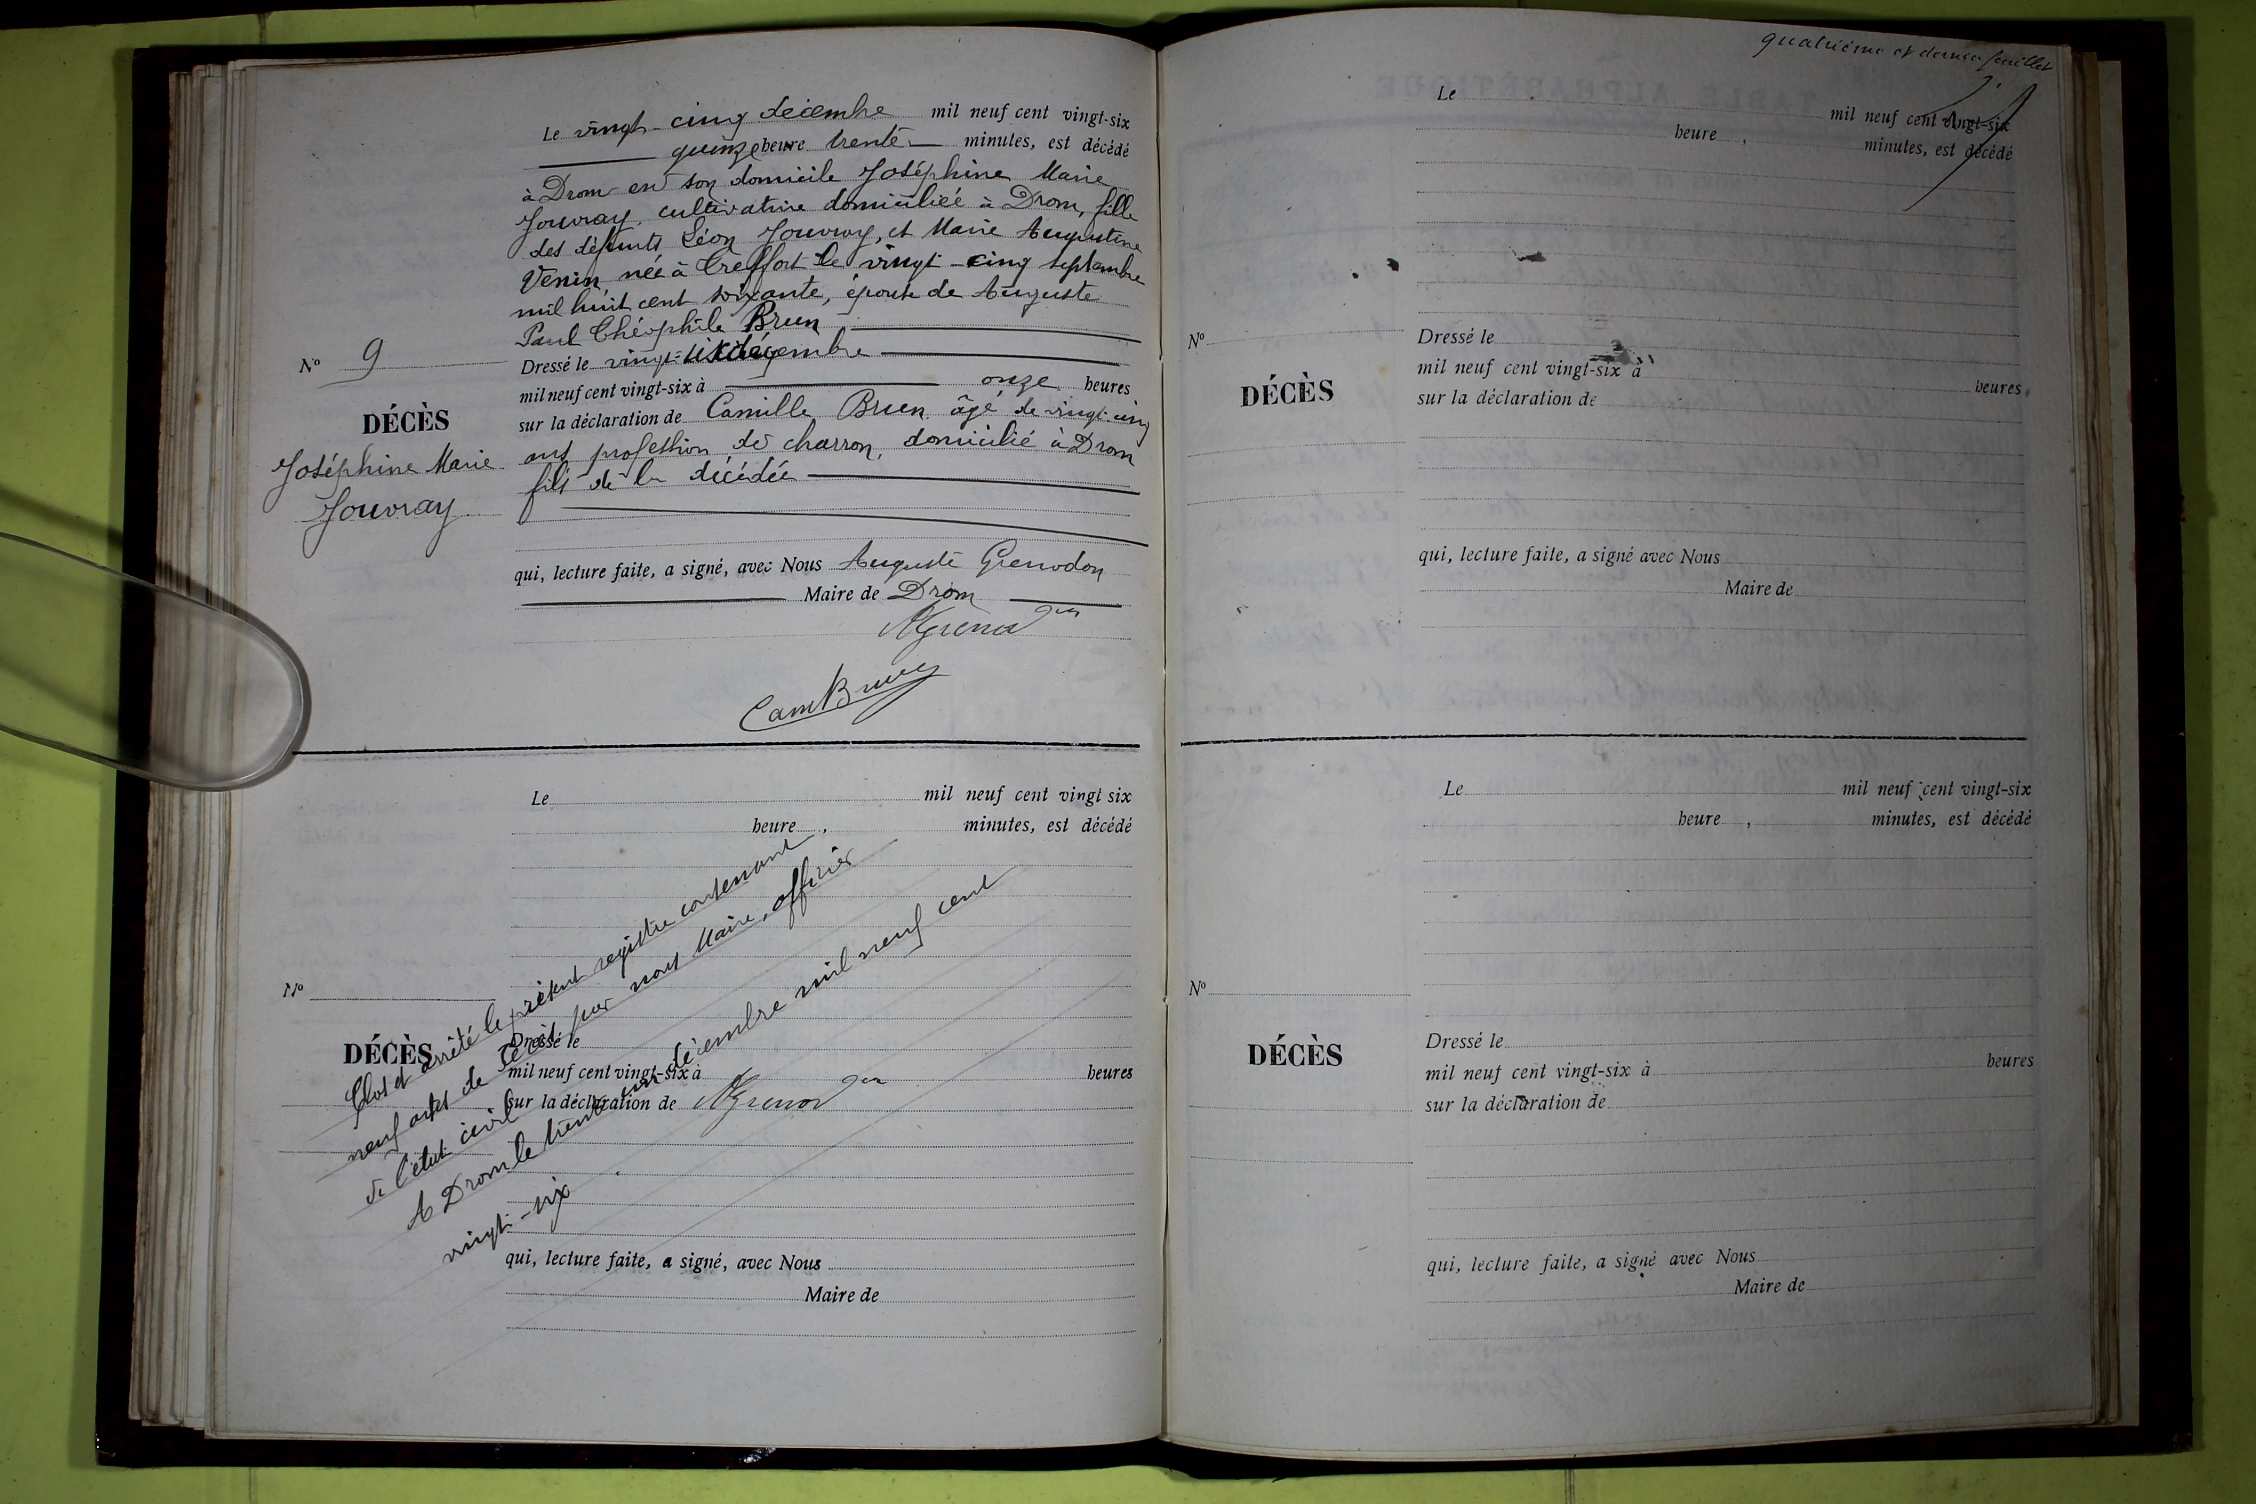 Le vingt-cinq décembre mil neuf cent vingt-six
quinze heure trente minutes, est décédé
à Drom en son domicile Joséphine Marie
Jouvray, cultivatrice domiciliée à Drom, fille
des défunts Léon Jouvray, et Marie Augustine
Venin née à Treffort le vingt-cinq septembre
mil huit cent soixante, épouse de Auguste
Paul Théophile Brun
Nº 9
DÉCÈS
Joséphine Marie
Jouvray
Dressé le vingt-six décembre
mil neuf cent vingt-six à onze heures
sur la déclaration de Camille Brun âgé de vingt-cinq
ans profession de charron, domicilié à Drom
fils de la décédée
qui, lecture faite, a signé, avec Nous Auguste Grenodon
Maire de Drom
AGrenod on
CamBrun
Le mil neuf cent vingt six
heure , minutes, est décédé
Nº
DÉCÈS
Dressé le
mil neuf cent vingt-six à heures
sur la déclaration de
qui, lecture faite, a signé, avec Nous
Maire de
Clos et arrêté le présent registre contenant
neuf actes de décès par nous Maire, officier
de l'état civil
A Drom le trente un décembre mil neuf cent
vingt-six
AGrenod on
quatrième et dernier feuillet
Le mil neuf cent vingt-six
heure , minutes, est décédé
Nº
DÉCÈS
Dressé le
mil neuf cent vingt-six à heures
sur la déclaration de
qui, lecture faite, a signé avec Nous
Maire de
Le mil neuf cent vingt-six
heure , minutes, est décédé
Nº
DÉCÈS
Dressé le
mil neuf cent vingt-six à heures
sur la déclaration de
qui, lecture faite, a signé avec Nous
Maire de